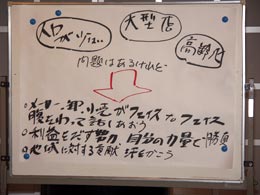 大型店
高齢化
問題はあるけれど
○メーカー、卸、小売がフェイスtoフェイス
腹をわって話しあおう
○利益をだす努力、自分の力量で勝負
○地域に対する貢献 汗をかこう